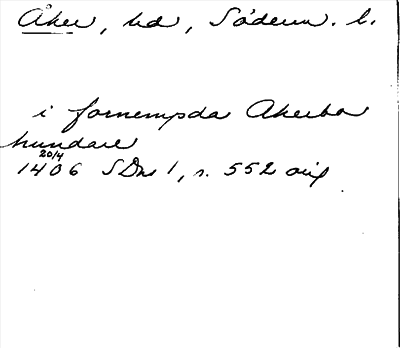 Åker, hd, Söderm. l.
i fornempda Akerbo
hundare
20/4
1406 SDns 1, s. 552 orig